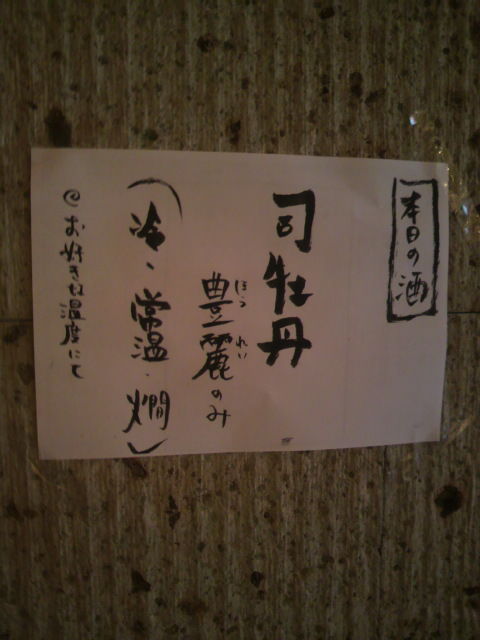 本日の酒
司牡丹
豊麗のみ
ほう れい
(冷・常温・燗)
@お好きな温度にて